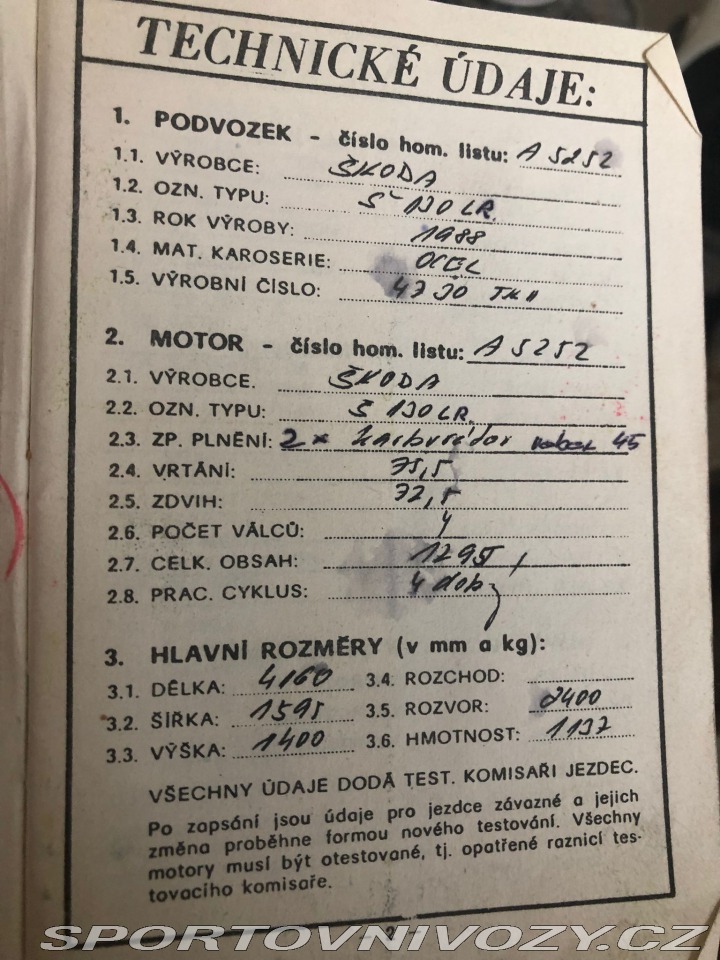 TECHNICKÉ ÚDAJE:
1. PODVOZEK - číslo hom. listu: A 5252
1.1. VÝROBCE: ŠKODA
1.2. OZN. TYPU: Š 130 LR.
1.3. ROK VÝROBY: 1988
1.4. MAT. KAROSERIE: OCEL
1.5. VÝROBNÍ ČÍSLO:
2. MOTOR - číslo hom. listu: A 5252
2.1. VÝROBCE. ŠKODA
2.2. OZN. TYPU: Š 130 LR.
2.3. ZP. PLNĚNÍ: 2x karburátor 45
2.4. VRTÁNÍ: 75,5
2.5. ZDVIH: 72,5
2.6. POČET VÁLCŮ: 4
2.7. CELK. OBSAH: 1295,
2.8. PRAC. CYKLUS: 4 dobý
3. HLAVNÍ ROZMĚRY (v mm a kg):
3.1. DÉLKA: 4160 3.4. ROZCHOD:
3.2. ŠÍŘKA: 1595 3.5. ROZVOR: 2400
3.3. VÝŠKA: 1400 3.6. HMOTNOST:
VŠECHNY ÚDAJE DODÁ TEST. KOMISAŘI JEZDEC.
Po zapsání jsou údaje pro jezdce závazné a jejich
změna proběhne formou nového testování. Všechny
motory musí být otestované, tj. opatřené raznicí tes-
tovacího komisaře.
SPORTOVNIVOZY.CZ